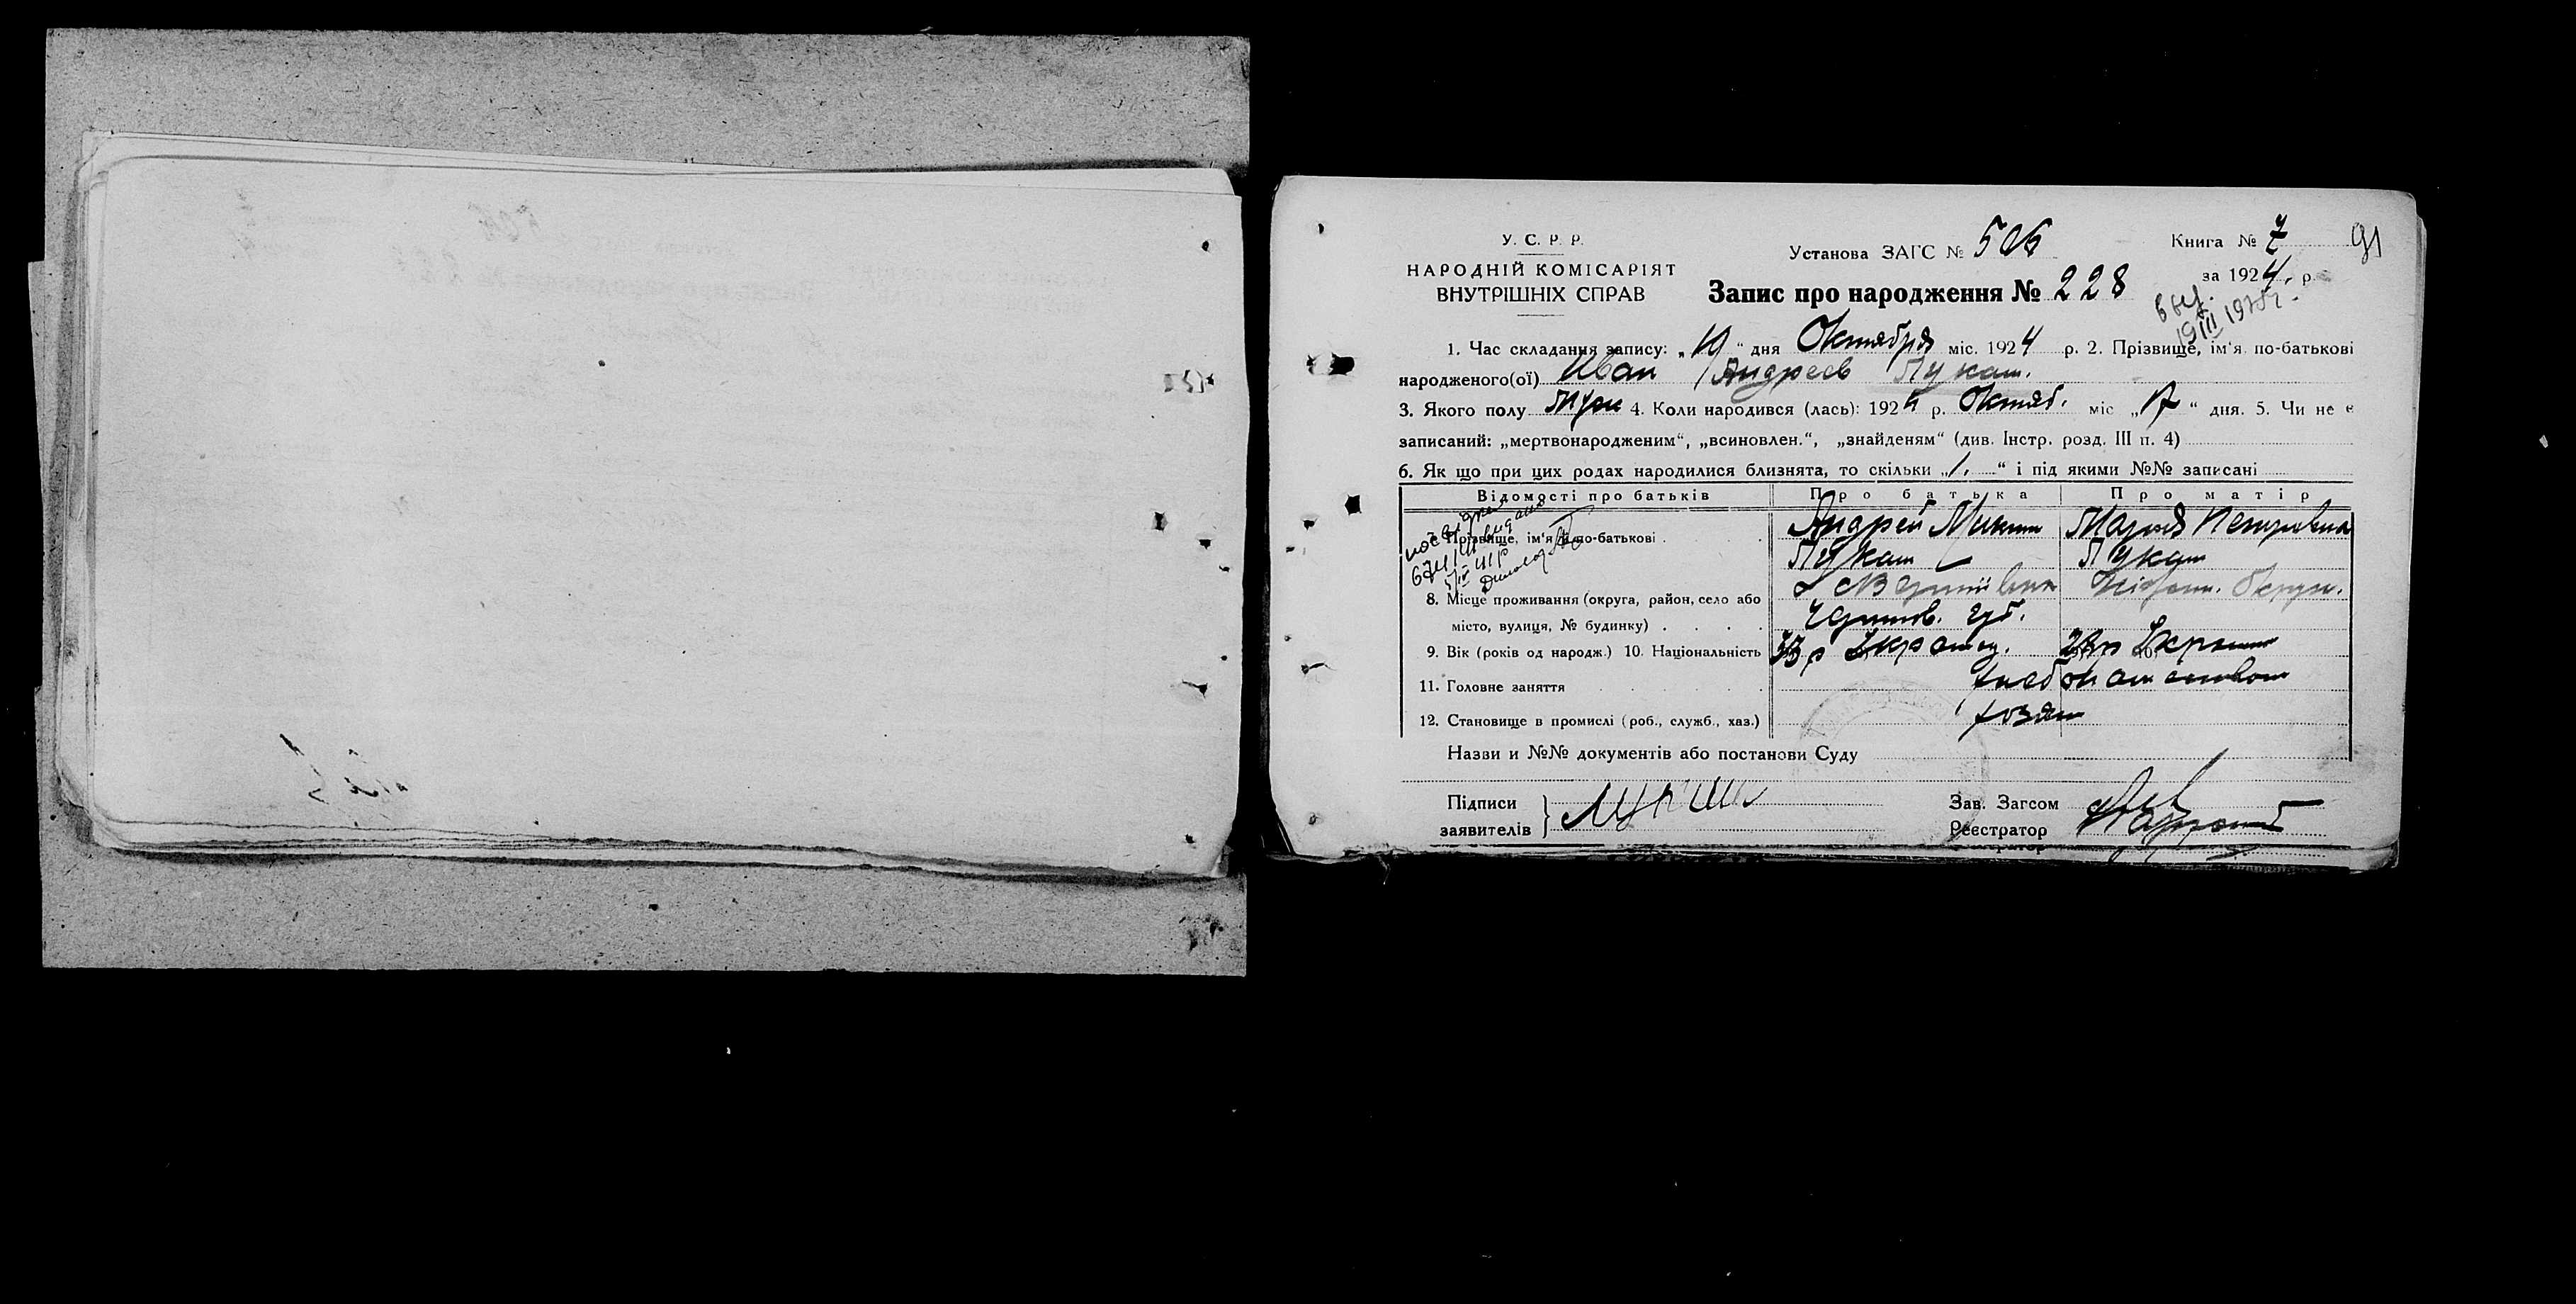 У. С. Р. Р.
НАРОДНІЙ КОМІСАРІЯТ
ВНУТРІШНІХ СПРАВ
Установа ЗАГС № 506
Книга № 7
91
за 1924. р.
Запис про народження № 228
19 III 1975г.
1. Час складання запису: „19“ дня Октября міс. 1924 р. 2. Прізвище, ім'я по-батькові
народженого(ої) Иван Андреев Пукат.
3. Якого полу Муж 4. Коли народився (лась): 1924 р. Октяб. міс „17“ дня. 5. Чи не є
записаний: „мертвонародженим“, „всиновлен.“, „знайденям“ (див. Інстр. розд. III п. 4)
6. Як що при цих родах народилися близнята, то скільки „1.“ і під якими №№ записані
Відомості про батьків Про батька Про матір
7. Прізвище, ім'я по-батькові Андрей Микит Мария Петровна
Пукат Пукат
8. Місце проживання (округа, район, село або
місто, вулиця, № будинку) Чернигов. губ.
9. Вік (років од народж.) 10. Національність 33 р 28 р
11. Головне заняття Хлебопашество
12. Становище в промислі (роб., служб., хаз.) хозяин
Назви и №№ документів або постанови Суду
Підписи
заявителів
Зав. Загсом
Реєстратор